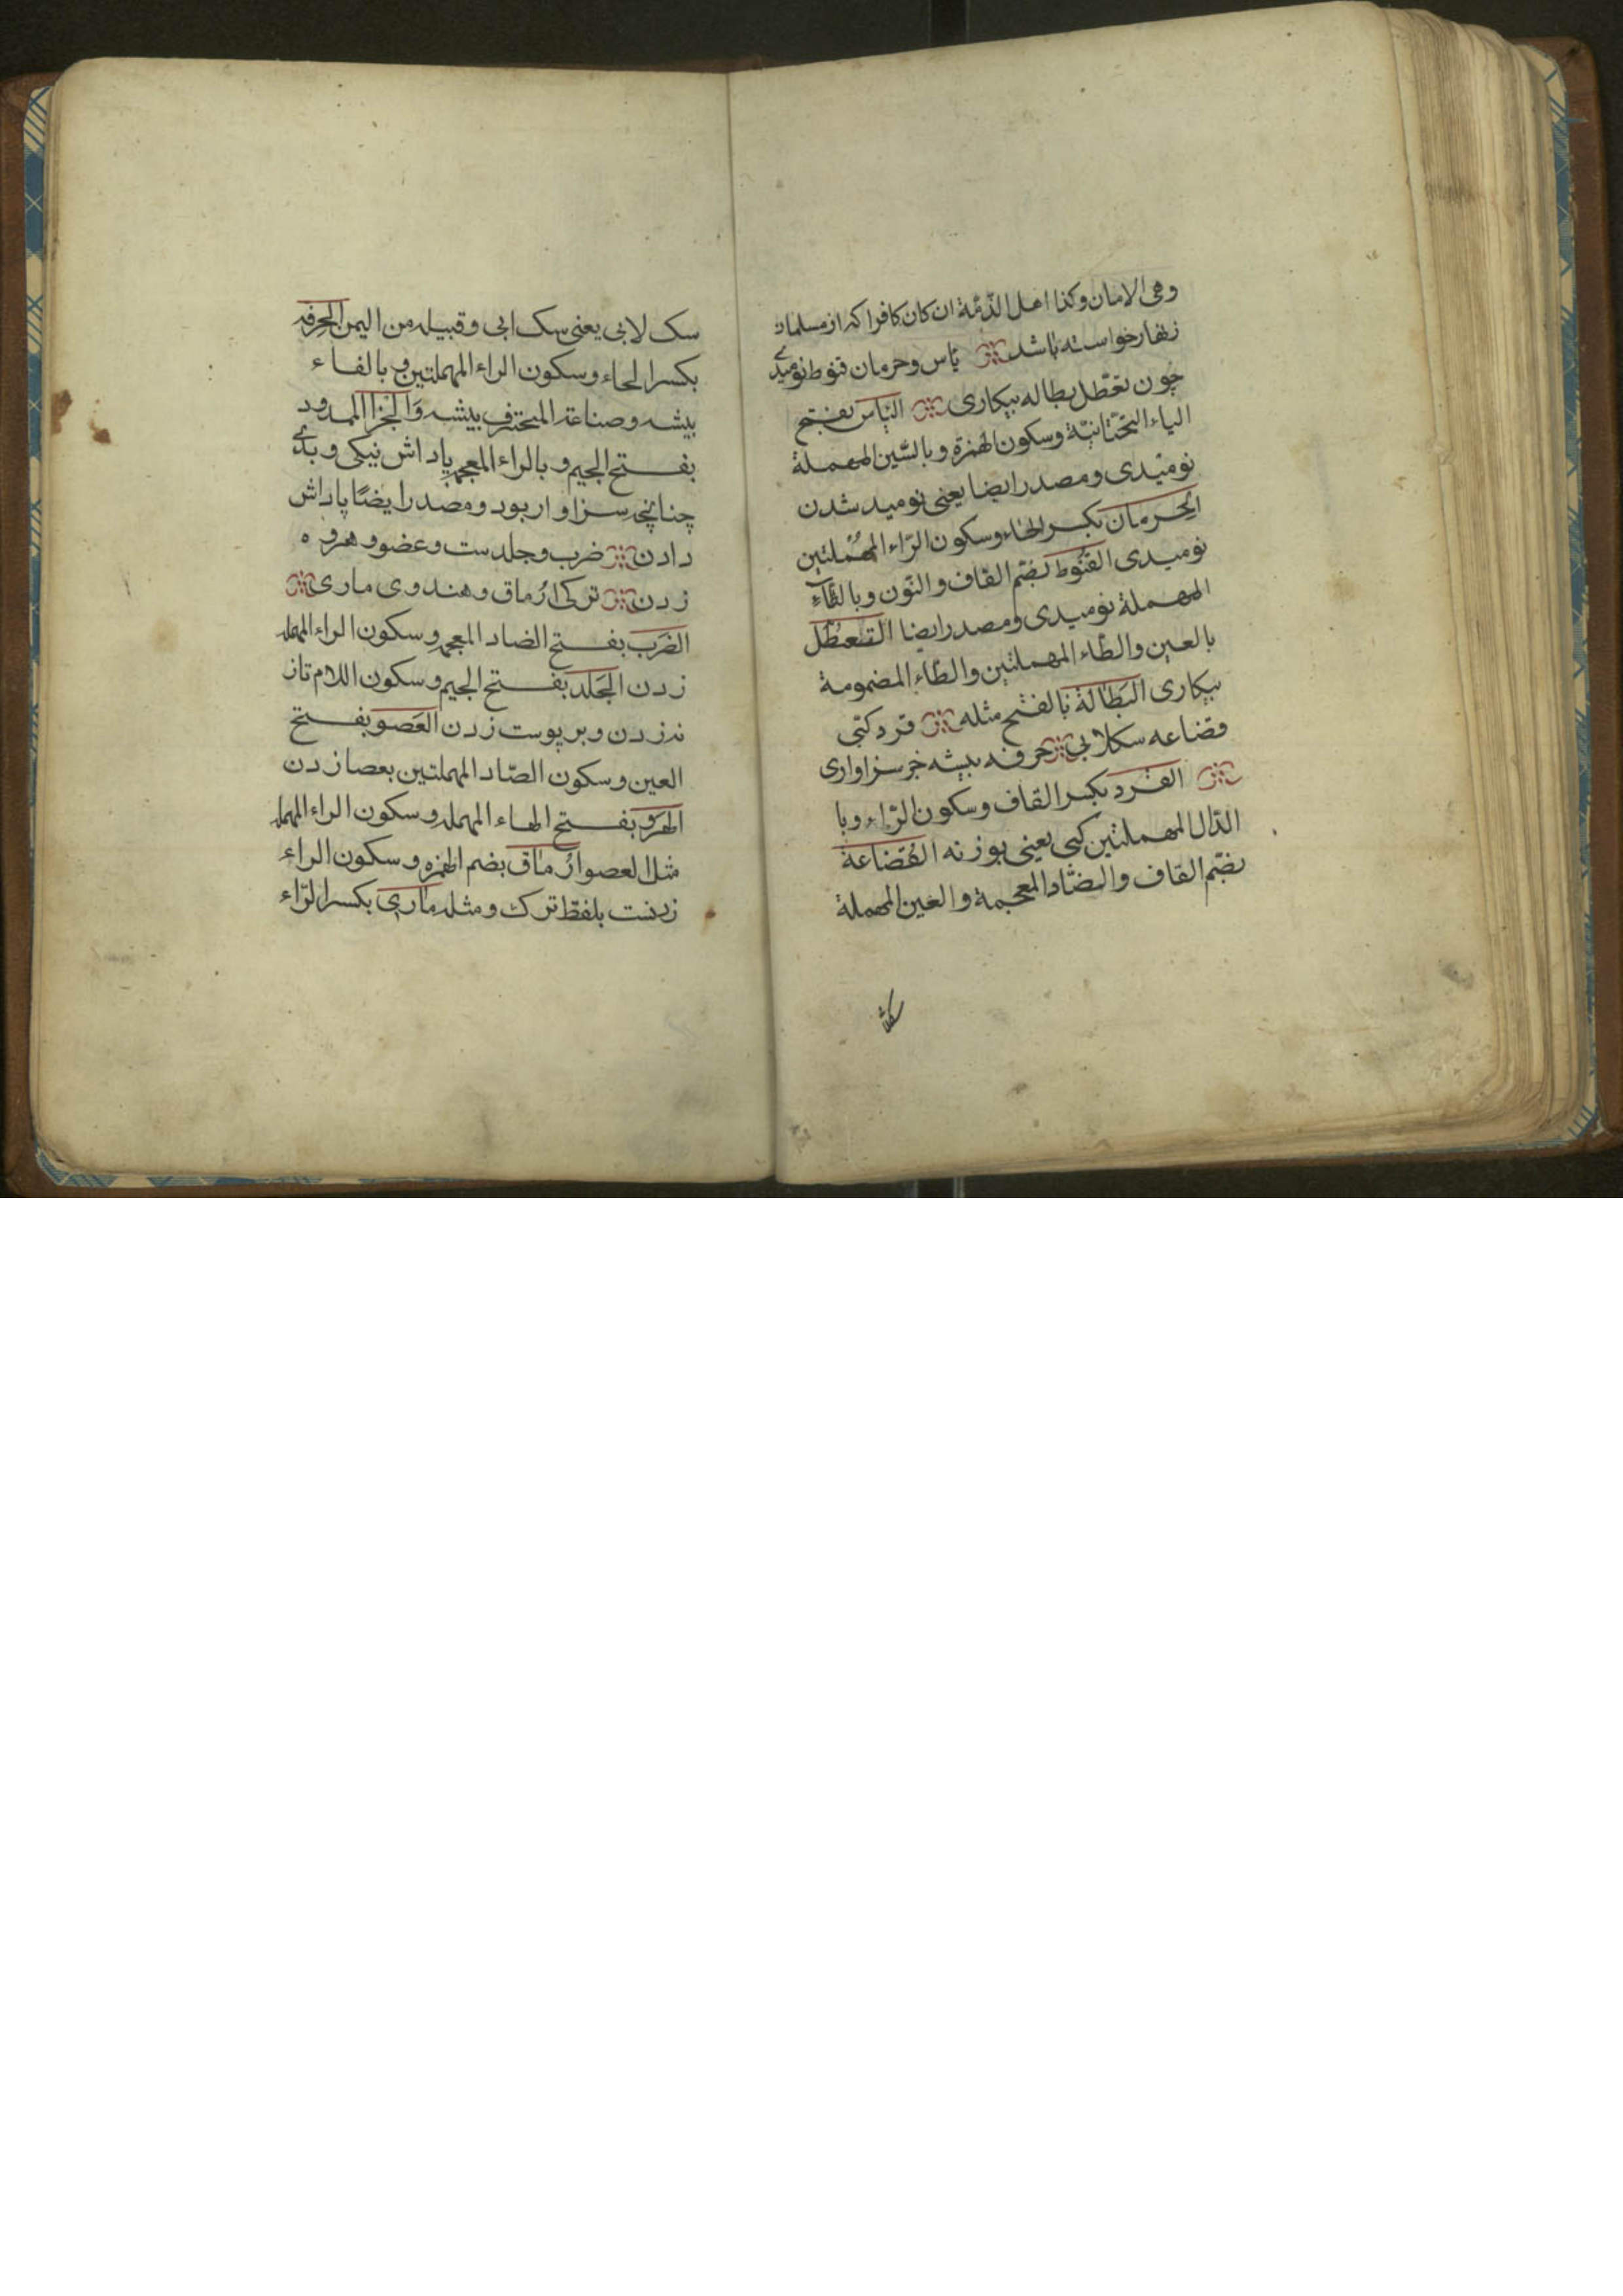 وهی الامان وکذا اهل الذّمّة ان کان کافرا که از مسلمان
زنهار خواسته باشد یأس و حرمان قنوط نومیدی
چون تعطّل بطاله بیکاری الیأس بفتح
الیاء التحتانیّة وسکون الهمزة وبالسّین المهملة
نومیدی ومصدر ایضا یعنی نومید شدن
الحِرمان بکسر الحاء وسکون الرّاء المهملتین
نومیدی القُنُوط بضمّ القاف والنّون وبالطّاء
المهملة نومیدی ومصدر ایضا التعطُّل
بالعین والطّاء المهملتین والطّاء المضمومة
بیکاری البَطالَة بالفتح مثله قرد کپّی
قضاعه سکلابی حرفه پیشه جز سزاواری
القرد بکسر القاف وسکون الرّاء وبا
الدّال المهملتین کپی یعنی بوزنه القُضاعة
بضمّ القاف والضّاد المعجمة والعین المهملة
سک لابی یعنی سک ابی وقبیله من الیمن الحِرفه
بکسر الحاء وسکون الراء المهملتین و بالفاء
پیشه وصناعة المحترف پیشه وَالجَزا الممدود
بفتح الجیم و بالراء المعجمه پاداش نیکی و بدی
چنانچه سزاوار بود ومصدر ایضًا پاداش
دادن ضرب وجلدست وعضو و هرو ه
زدن ترکی اُرماق وهندوی ماری
الضَرب بفتح الضاد المعجمه وسکون الراء المهمله
زدن الجَلد بفتح الجیم وسکون اللام تاز
نه زدن وبر پوست زدن العَصو بفتح
العین وسکون الصّاد المهملتین بعصا زدن
الهرو بفتح الهاء المهمله وسکون الراء المهمله
مثل العصو اُرماق بضم الهمزه وسکون الراء
زدنست بلفظ ترک ومثله ماری بکسر الرّاء